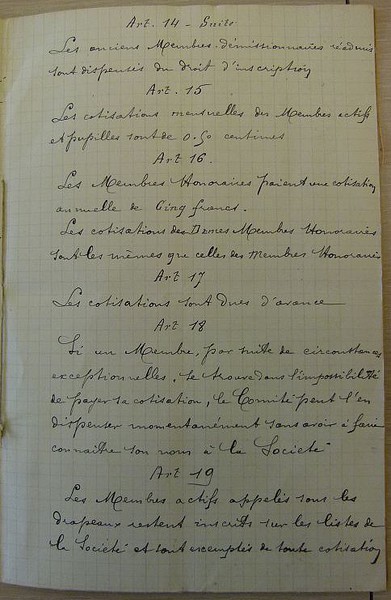 Art. 14 - Suite
Les anciens Membres démissionnaires réadmis
sont dispensés du droit d'inscription
Art. 15
Les cotisations mensuelles des Membres actifs
et pupilles sont de 0.50 centimes
Art 16.
Les Membres Honoraires paient une cotisation
annuelle de Cinq francs.
Les cotisations des Dames Membres Honoraires
sont les mêmes que celles des Membres Honoraires
Art 17
Les cotisations sont dues d'avance
Art 18
Si un Membre, par suite de circonstances
exceptionnelles, se trouve dans l'impossibilité
de payer sa cotisation, le Comité peut l'en
dispenser momentanément sans avoir à faire
connaître son nom à la Société
Art 19
Les Membres actifs appelés sous les
drapeaux restent inscrits sur les listes de
la Société et sont exemptés de toute cotisation